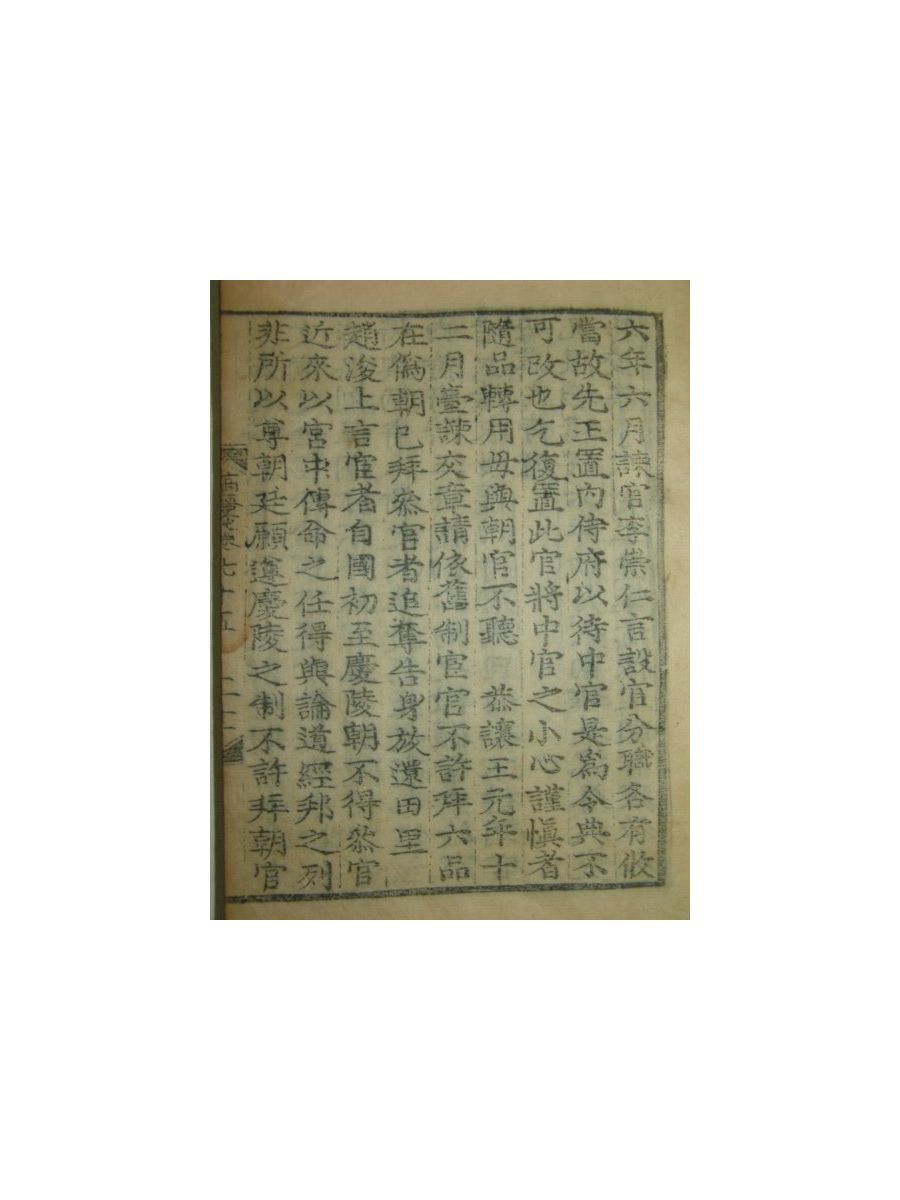 六年六月諫官李崇仁言設官分職各有攸
當故先王置內侍府以待中官是爲令典不
可改也乞復置此官將中官之小心謹愼者
隨品轉用毋與朝官不聽　恭讓王元年十
二月臺諫交章請依舊制宦官不許拜六品
在僞朝已拜叅官者追奪告身放還田里
趙浚上言宦者自國初至慶陵朝不得叅官
近來以宮中傳命之任得與論道經邦之列
非所以尊朝廷願遵慶陵之制不許拜朝官
高麗史卷七十五